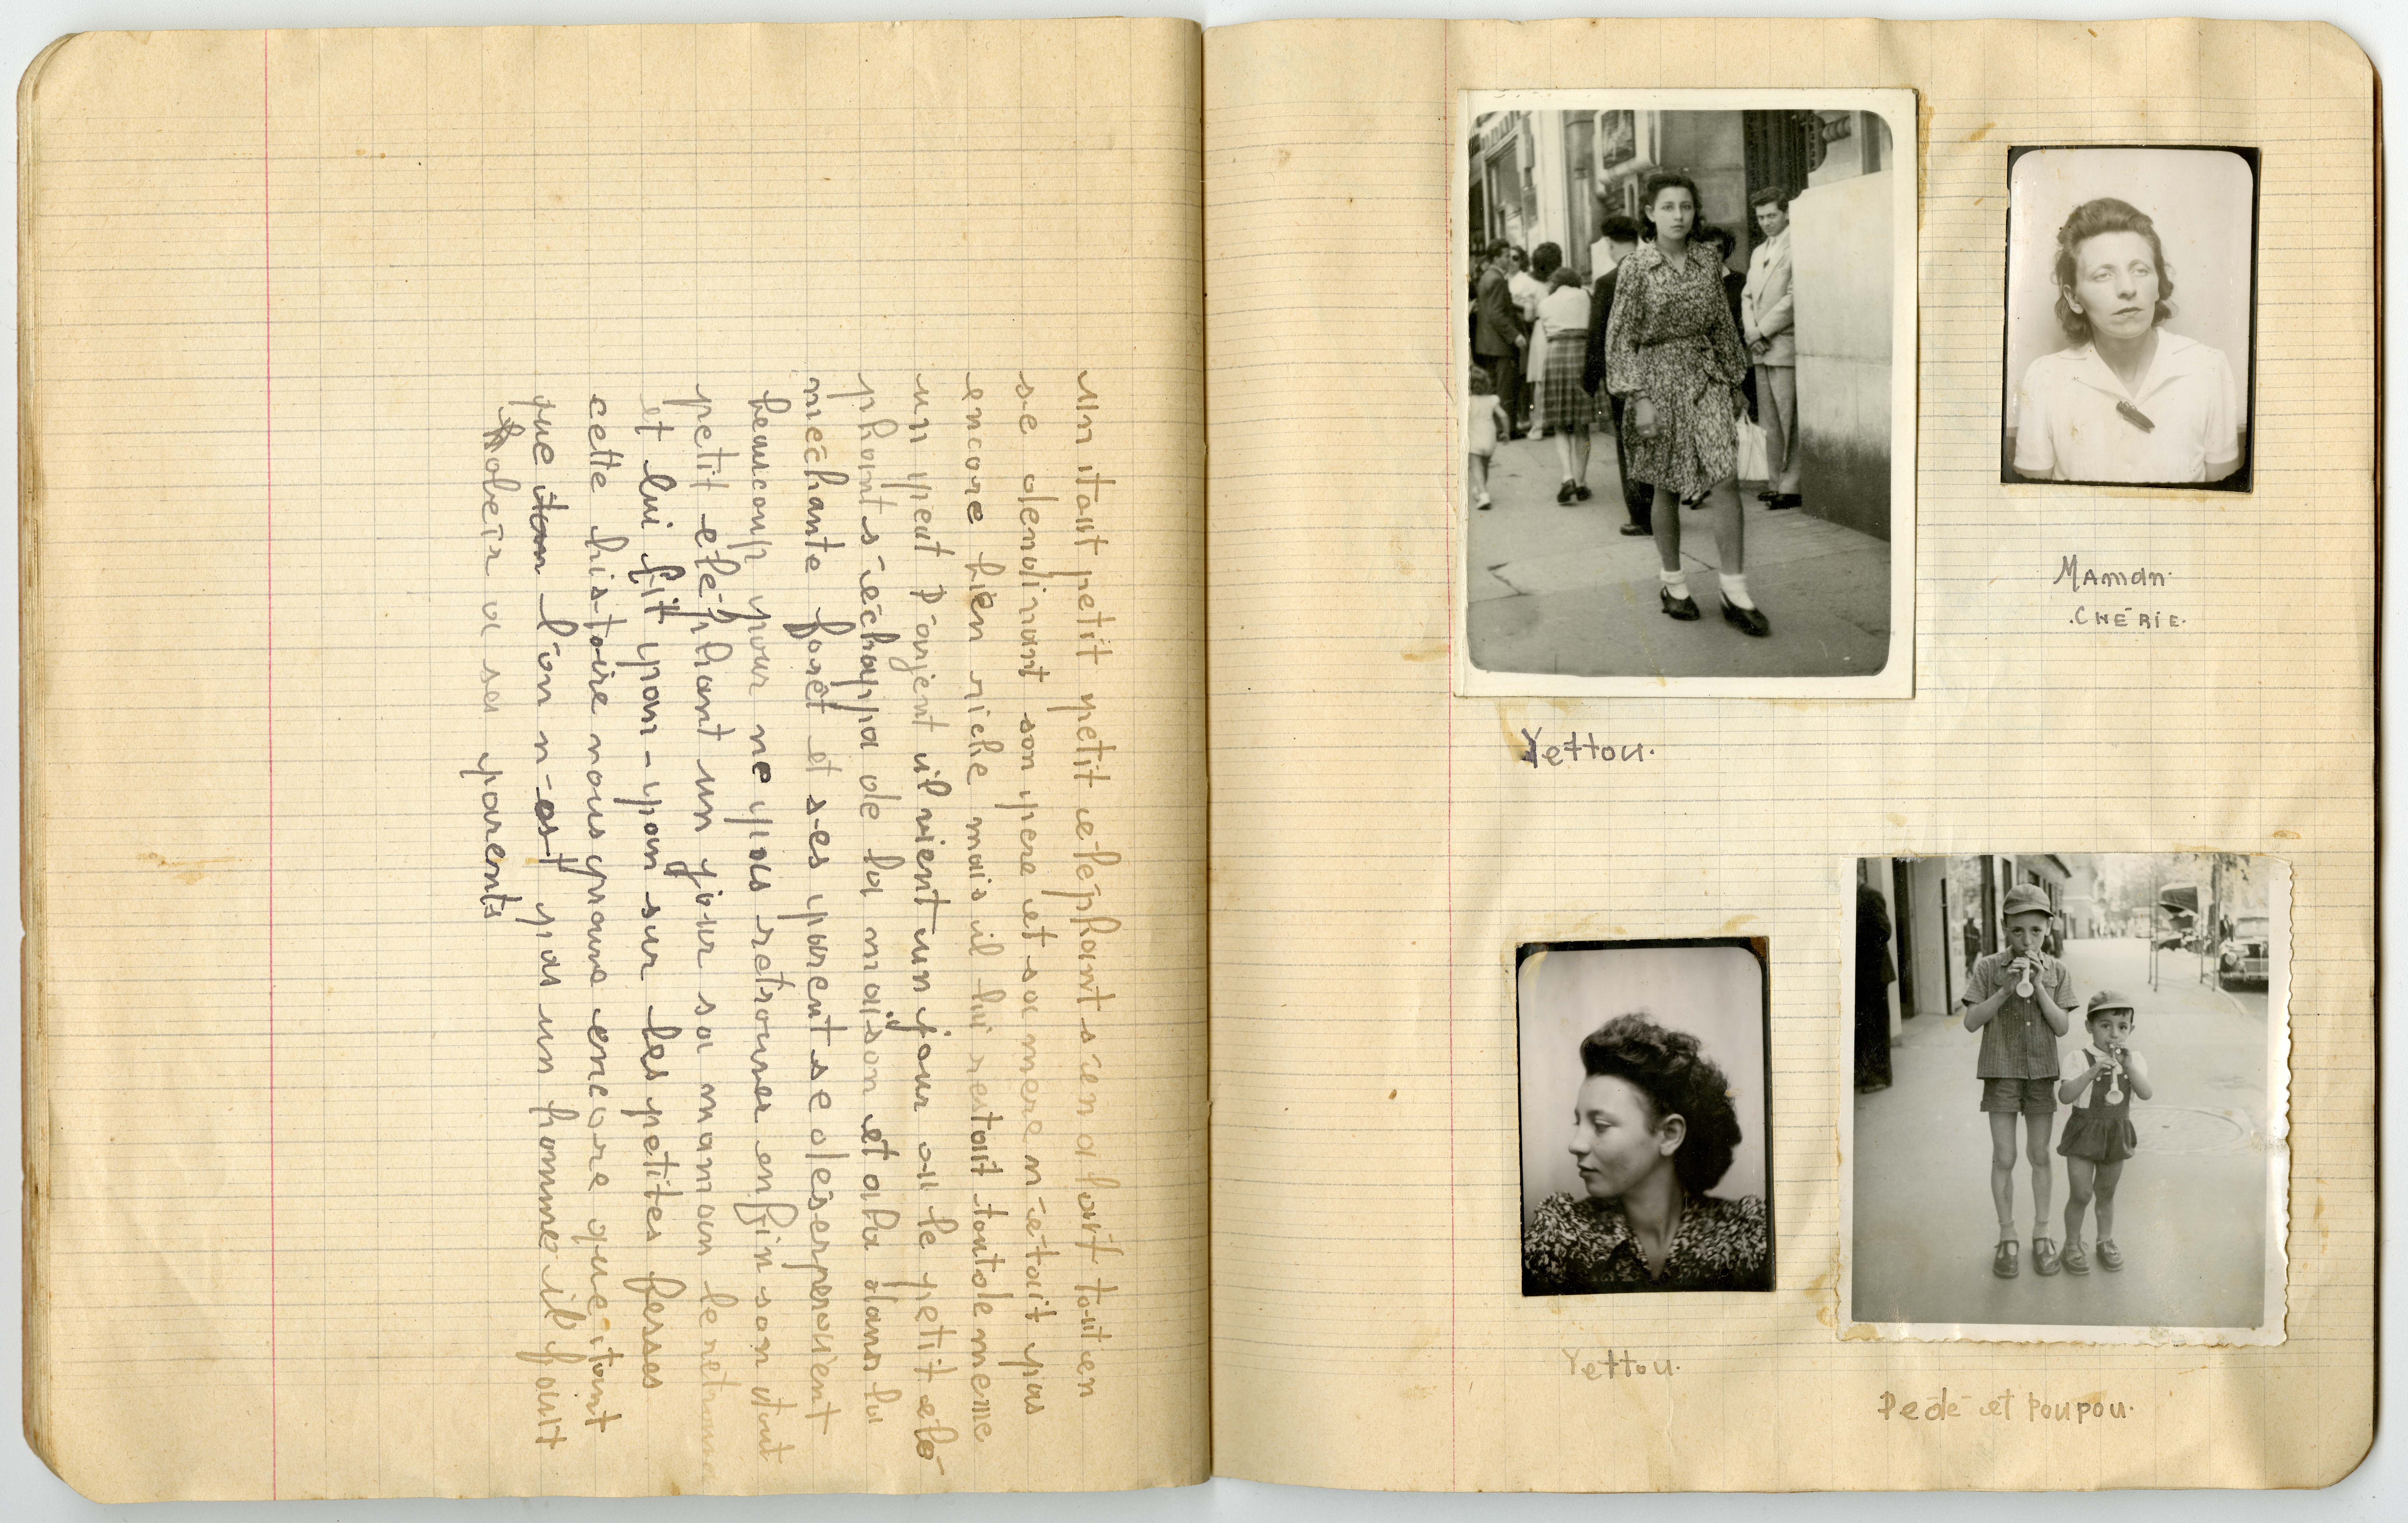 un tout petit petit eléphant s'en alait tout en
se dendinant son pere et sa mere n'était pas
encore bien riche mais il lui restait tout de meme
un peut d'argent il vient un jour ou le petit elé
phant s'échappa de la maison et ala dans la
méchante foret et ses parent se désesperaient
beaucoup pour ne pas retrouver enfin son tout
petit eléphant un jour sa maman le retrouva
et lui fit pan-pan sur les petites fesses
cette histoire nous prouve encore que tant
que l'on n-est pas un homme il faut
obéir a sa parents
Yettou.
Maman.
.CHÉRIE.
Yettou.
Dédé et Poupou.